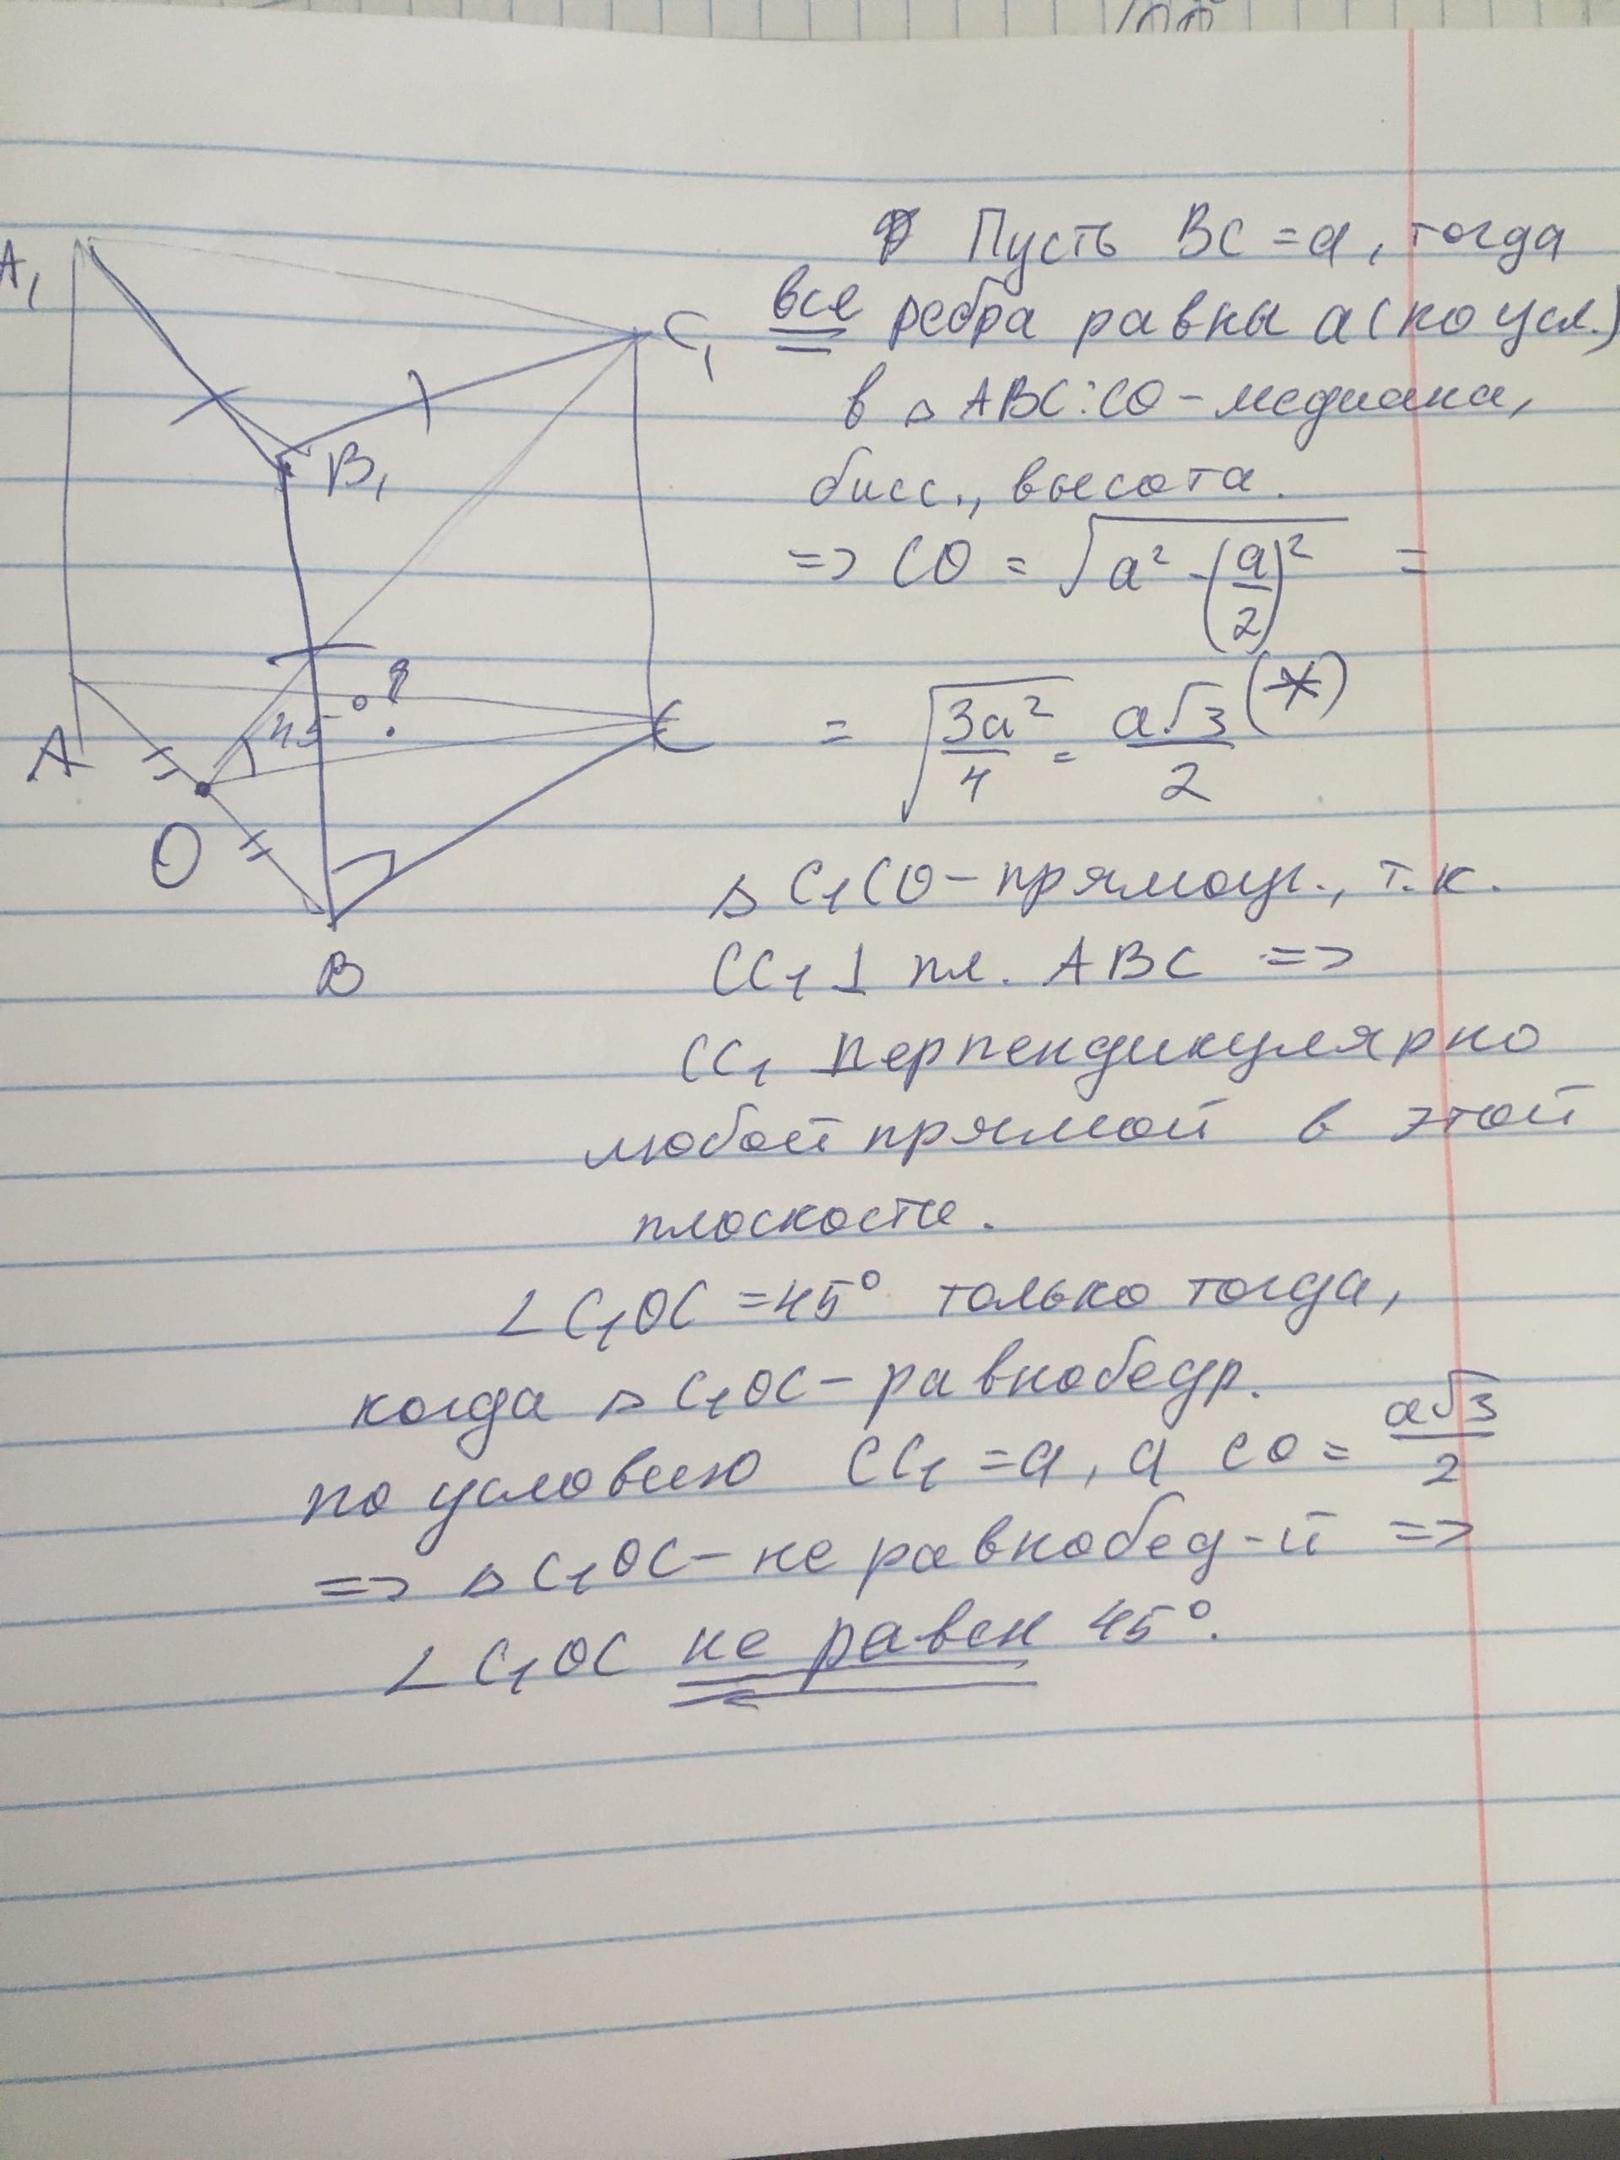 A₁
C₁
B₁
45°?
A
C
O
B
Пусть BC = a, тогда
все ребра равны a (по усл.)
в △ ABC: CO – медиана,
бисс., высота.
=> CO = √(a² - (a/2)²) =
= √(3a²/4) = a√3/2 (*)
△ C₁CO – прямоуг., т.к.
CC₁ ⊥ пл. ABC =>
CC₁ перпендикулярно
любой прямой в этой
плоскости.
∠ C₁OC = 45° только тогда,
когда △ C₁OC – равнобедр.
по условию CC₁ = a, а CO = a√3/2
=> △ C₁OC – не равнобед-й =>
∠ C₁OC не равен 45°.